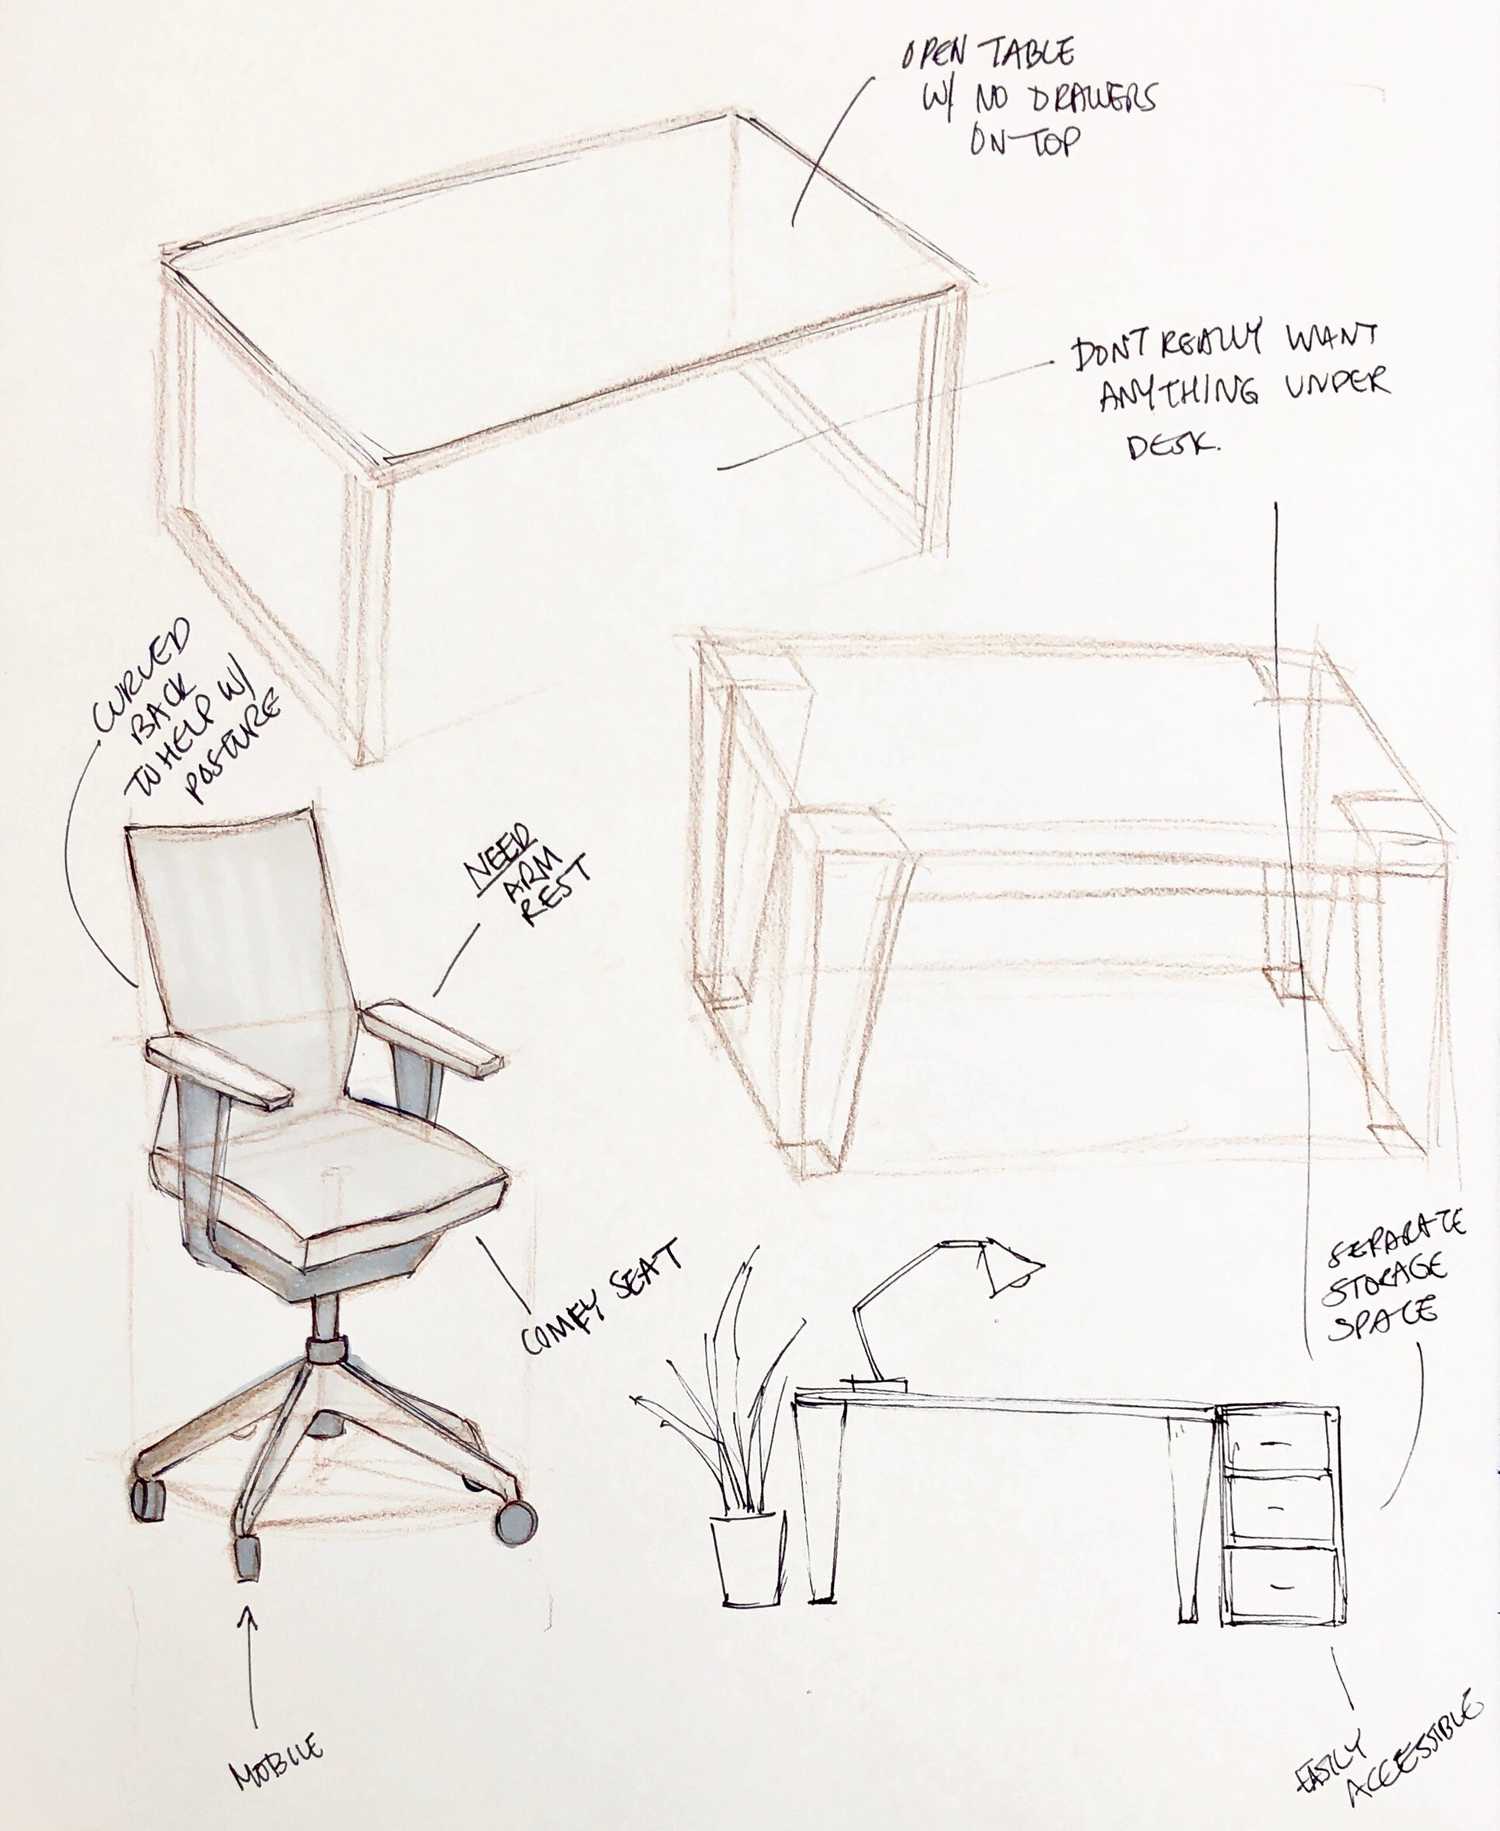 OPEN TABLE
W/ NO DRAWERS
ON TOP
DON'T REALLY WANT
ANYTHING UNDER
DESK.
CURVED
BACK
TO HELP W/
POSTURE
NEED
ARM
REST
COMFY SEAT
SEPARATE
STORAGE
SPACE
MOBILE
EASILY
ACCESSIBLE